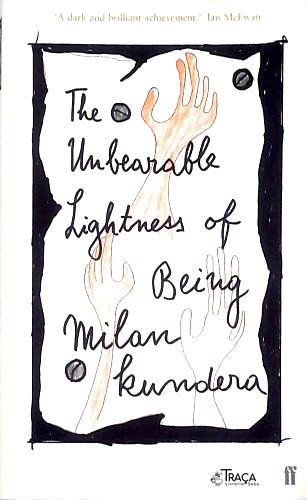 'A dark and brilliant achievement.' Ian McEwan
The
Unbearable
Lightness of
Being
Milan
Kundera
TRAÇA
Livraria e Sebo
ff